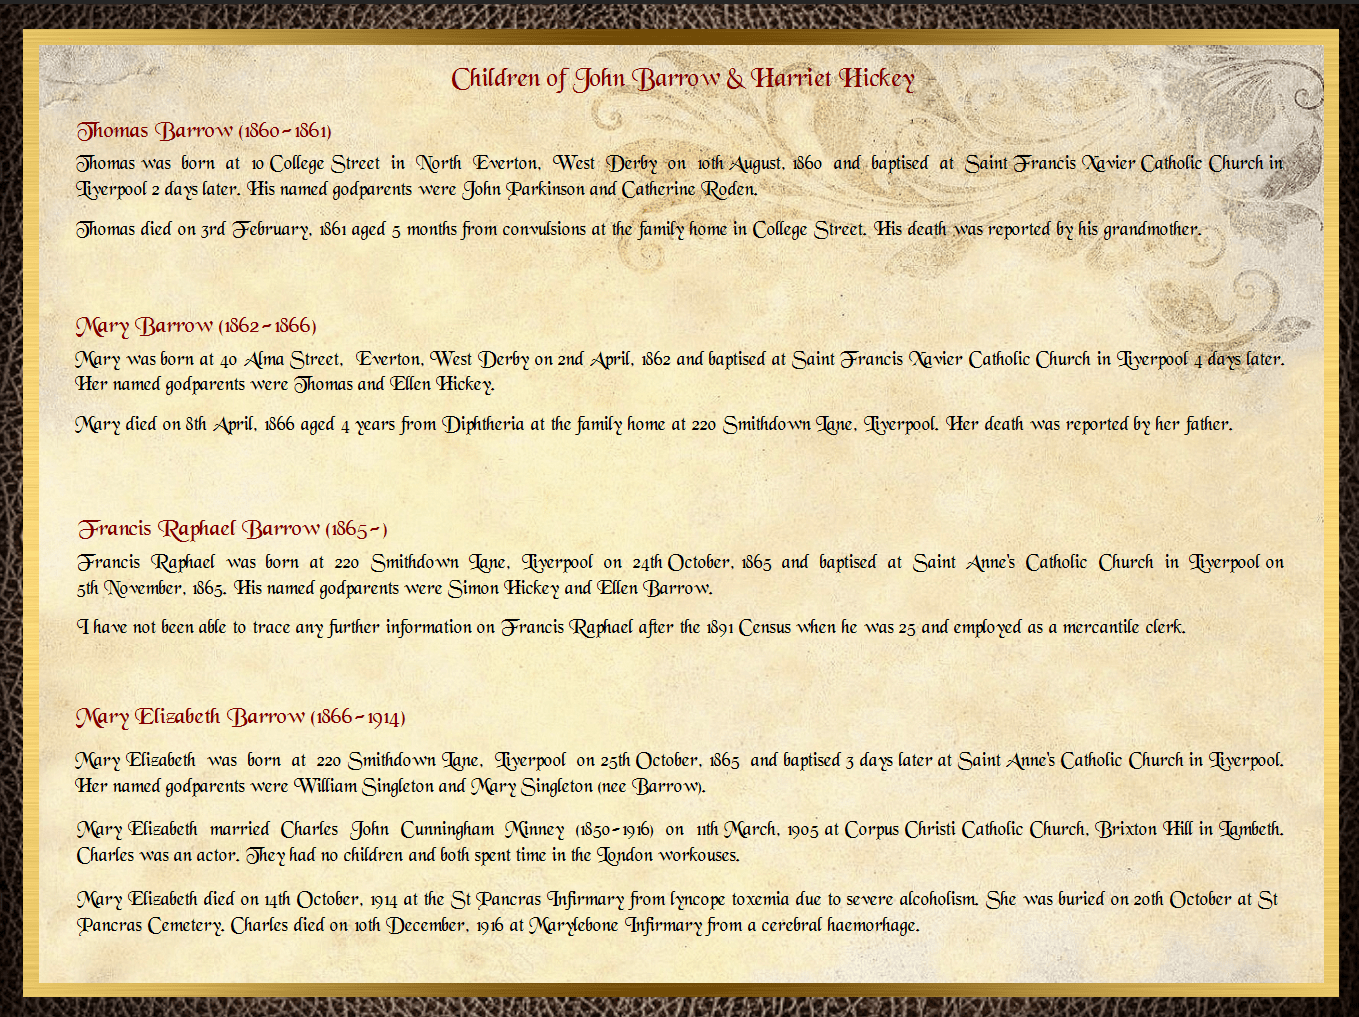 Children of John Barrow & Harriet Hickey
Thomas Barrow (1860~1861)
Thomas was born at 10 College Street in North Everton, West Derby on 10th August, 1860 and baptised at Saint Francis Xavier Catholic Church in
Liverpool 2 days later. His named godparents were John Parkinson and Catherine Roden.
Thomas died on 3rd February, 1861 aged 5 months from convulsions at the family home in College Street. His death was reported by his grandmother.
Mary Barrow (1862~1866)
Mary was born at 40 Alma Street, Everton, West Derby on 2nd April, 1862 and baptised at Saint Francis Xavier Catholic Church in Liverpool 4 days later.
Her named godparents were Thomas and Ellen Hickey.
Mary died on 8th April, 1866 aged 4 years from Diphtheria at the family home at 220 Smithdown Lane, Liverpool. Her death was reported by her father.
Francis Raphael Barrow (1865~)
Francis Raphael was born at 220 Smithdown Lane, Liverpool on 24th October, 1865 and baptised at Saint Anne's Catholic Church in Liverpool on
5th November, 1865. His named godparents were Simon Hickey and Ellen Barrow.
I have not been able to trace any further information on Francis Raphael after the 1891 Census when he was 25 and employed as a mercantile clerk.
Mary Elizabeth Barrow (1866~1914)
Mary Elizabeth was born at 220 Smithdown Lane, Liverpool on 25th October, 1865 and baptised 3 days later at Saint Anne's Catholic Church in Liverpool.
Her named godparents were William Singleton and Mary Singleton (nee Barrow).
Mary Elizabeth married Charles John Cunningham Minney (1850~1916) on 11th March, 1905 at Corpus Christi Catholic Church, Brixton Hill in Lambeth.
Charles was an actor. They had no children and both spent time in the London workouses.
Mary Elizabeth died on 14th October, 1914 at the St Pancras Infirmary from lyncope toxemia due to severe alcoholism. She was buried on 20th October at St
Pancras Cemetery. Charles died on 10th December, 1916 at Marylebone Infirmary from a cerebral haemorhage.